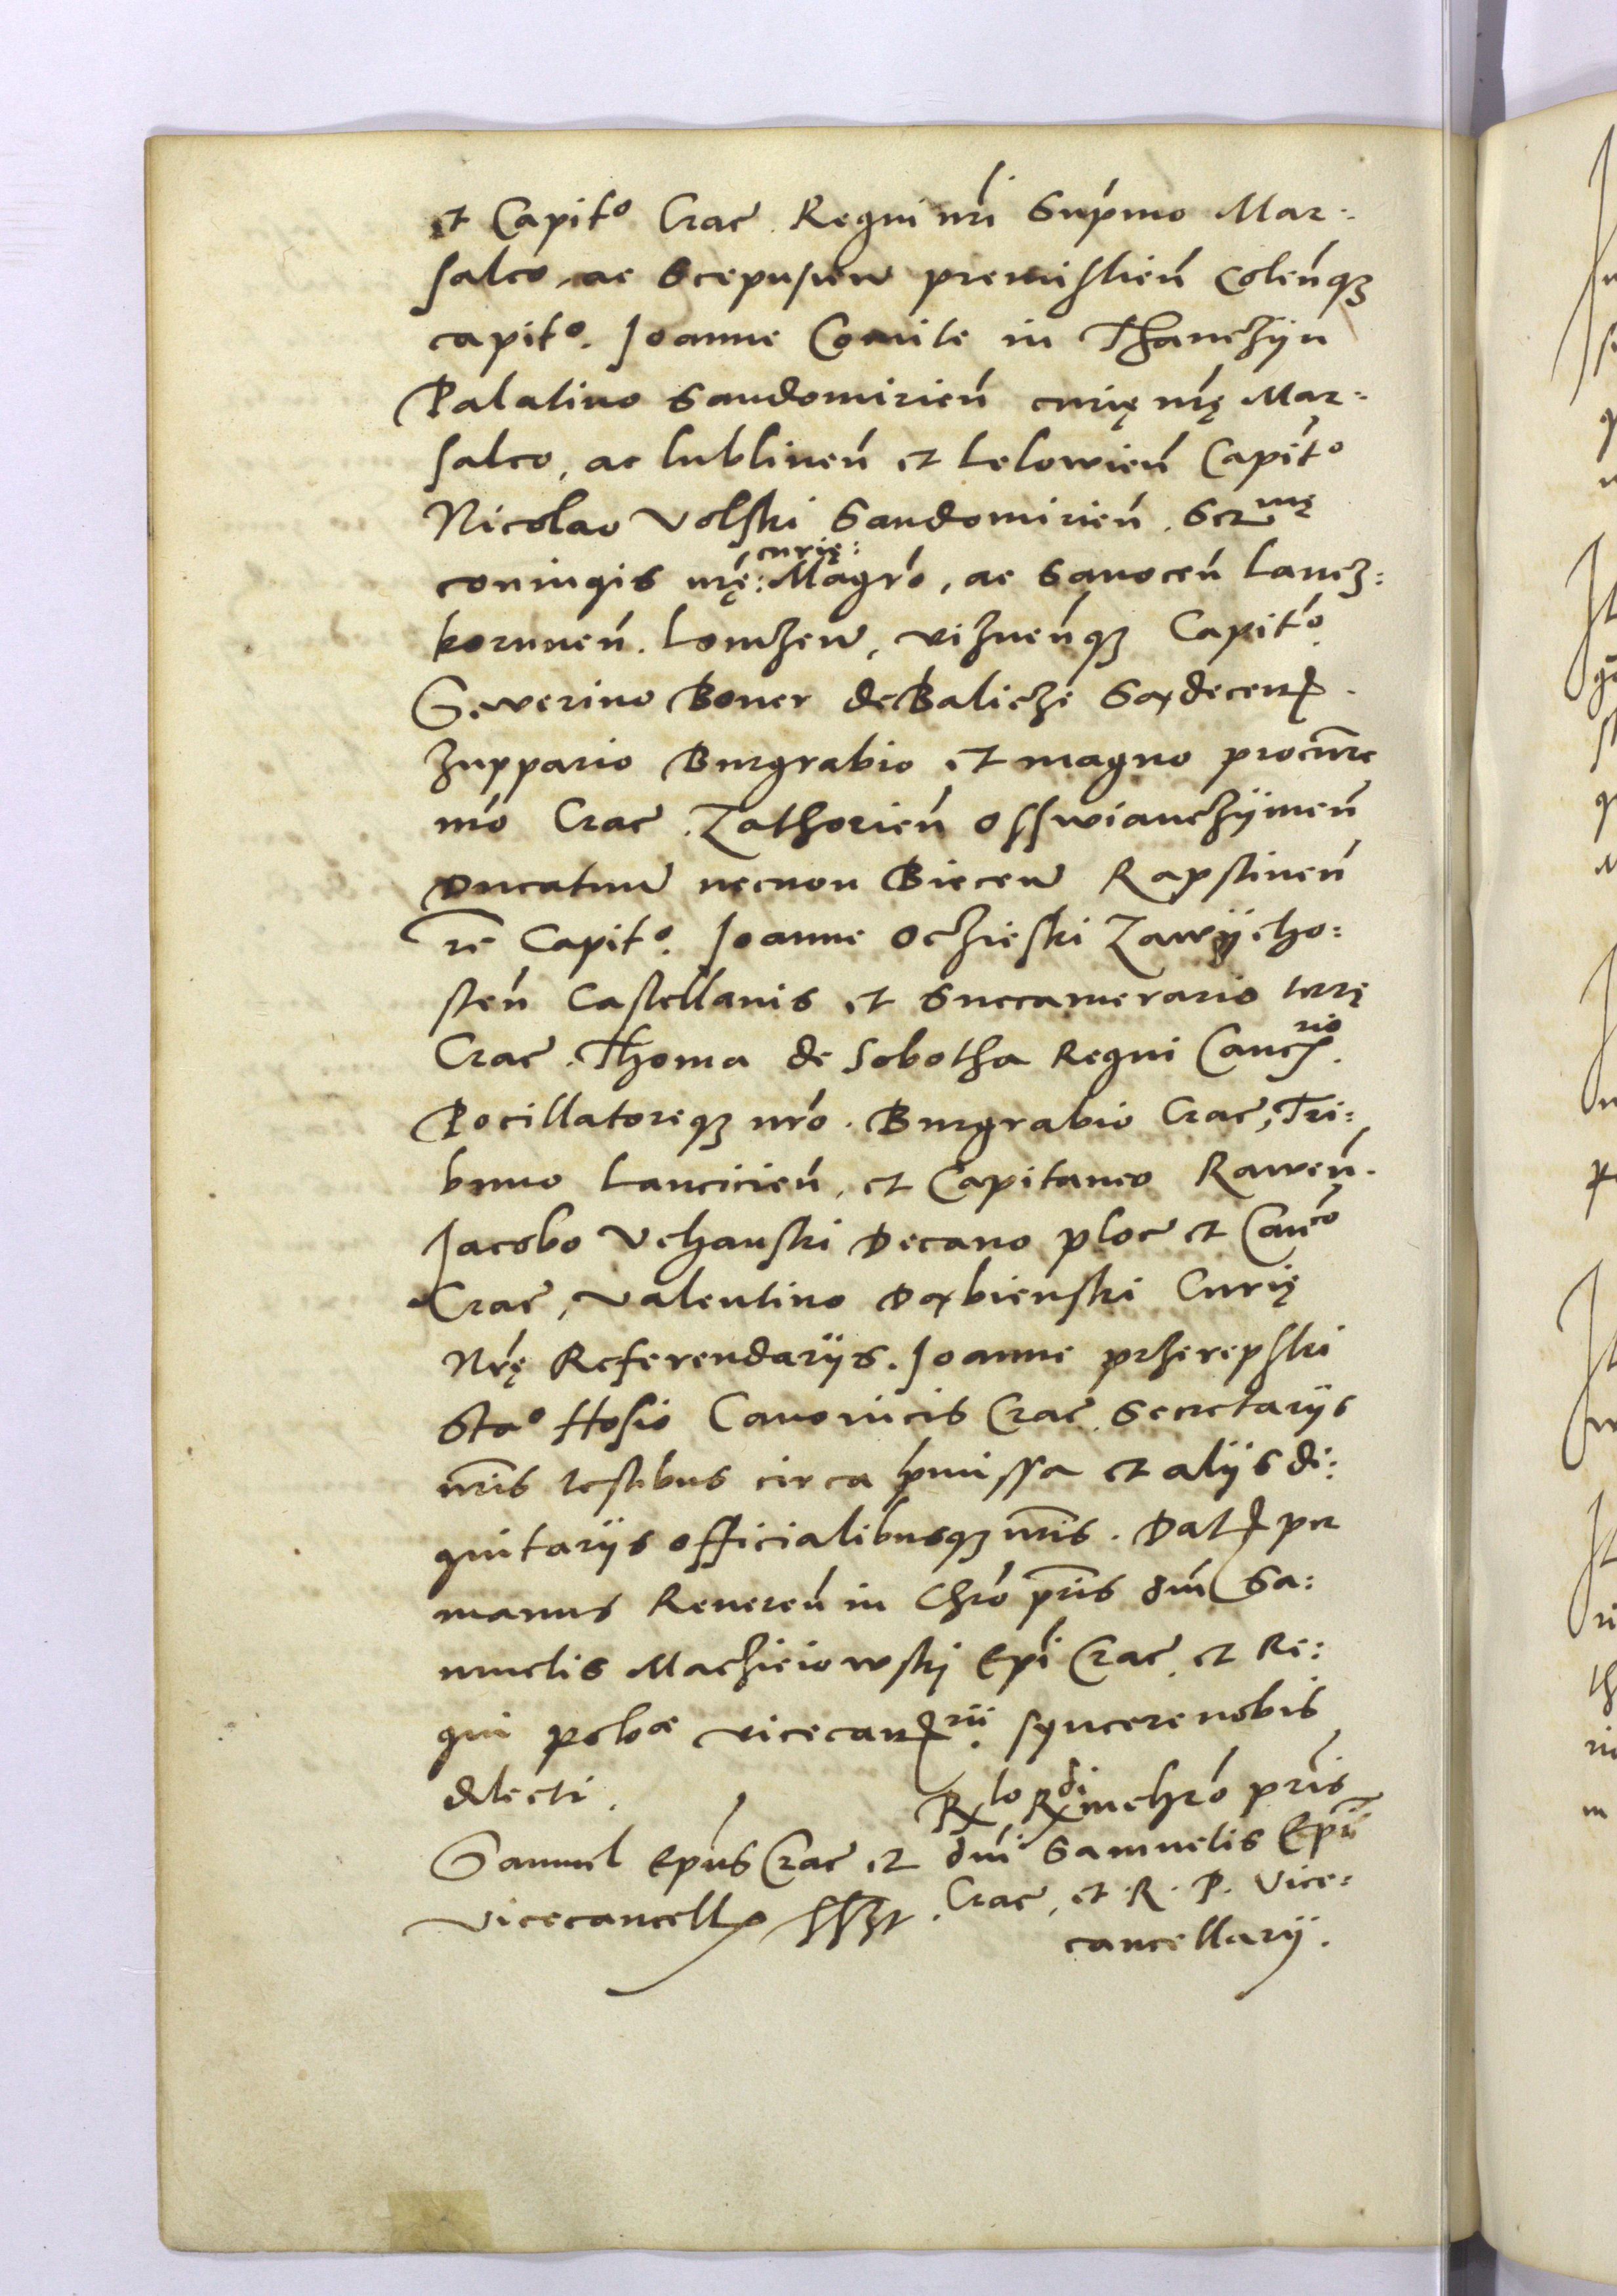 et Capit° Crac̄. Regni nr̄i Sup̄mo Mar:
salco, ac Scepusien̄ premislien̄ Colen̄qȝ
capit°. Joanne Comite in Thanchzÿn
Palatino Sandomirien̄ curię nr̄ę Mar:
salco, ac lublinen̄ et Lelowien̄ Capit°
Nicolao Volski Sandomirien̄. Ser^mę
coniugis nr̄ę: curię: Magr̄o, ac Sanocen̄ Lancz:
korunen̄. Lomzen̄, viznen̄qȝ Capit°.
Severino Boner de Baliczi Sandecen̄.
Zuppario Burgrabio et magno procur̄re
nr̄o Crac̄. Zathorien̄ osswianczÿmen̄
Ducatuū necnon Biecen̄ Rapstinen̄
re Capit°. Joanne Oczieski Zawÿcho:
sten̄ Castellanis et Succamerario terrę
Crac̄. Thoma de Sobotha Regni Canc^rio.
Pocillatoreqȝ nr̄o. Burgrabio Crac̄, Tri:
buno Lancicien̄, et Capitaneo Rawen̄.
Jacobo Vchanski Decano ploc̄ et Can^co
Crac̄, Valentino Dembienski Curię
Nr̄ę Referendarijs. Joanne przerepski
Sta° Hosio Canonicis Crac̄. Secretarijs
nr̄is testibus circa p̄missa et alijs di:
gnitarijs officialibusqȝ nr̄is. Dat̄ per
manus Reueren̄ in Chr̄o pr̄is dn̄i Sa:
muelis Machieiowskj Ep̄i Crac̄ et Re:
gni Polonie vicecan^rii. syncere nobis
dilecti.
R^lo R^di in chr̄o pr̄is
Samuel Ep̄us Crac̄ et
dn̄i Samuelis Ep̄i
vicecancell sszt.
Crac̄, et. R. P. Vice:
cancellarij.